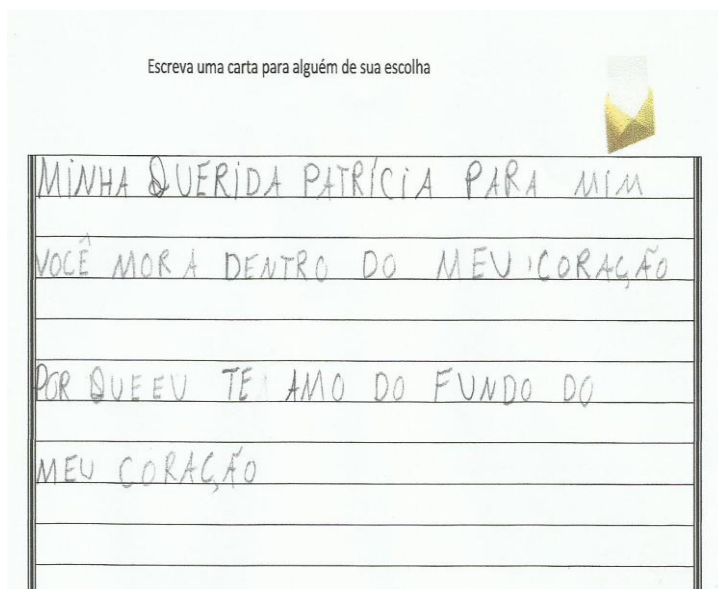 Escreva uma carta para alguém de sua escolha
MINHA QUERIDA PATRÍCIA PARA MIM
VOCÊ MORA DENTRO DO MEU CORAÇÃO
POR QUEEU TE AMO DO FUNDO DO
MEU CORAÇÃO